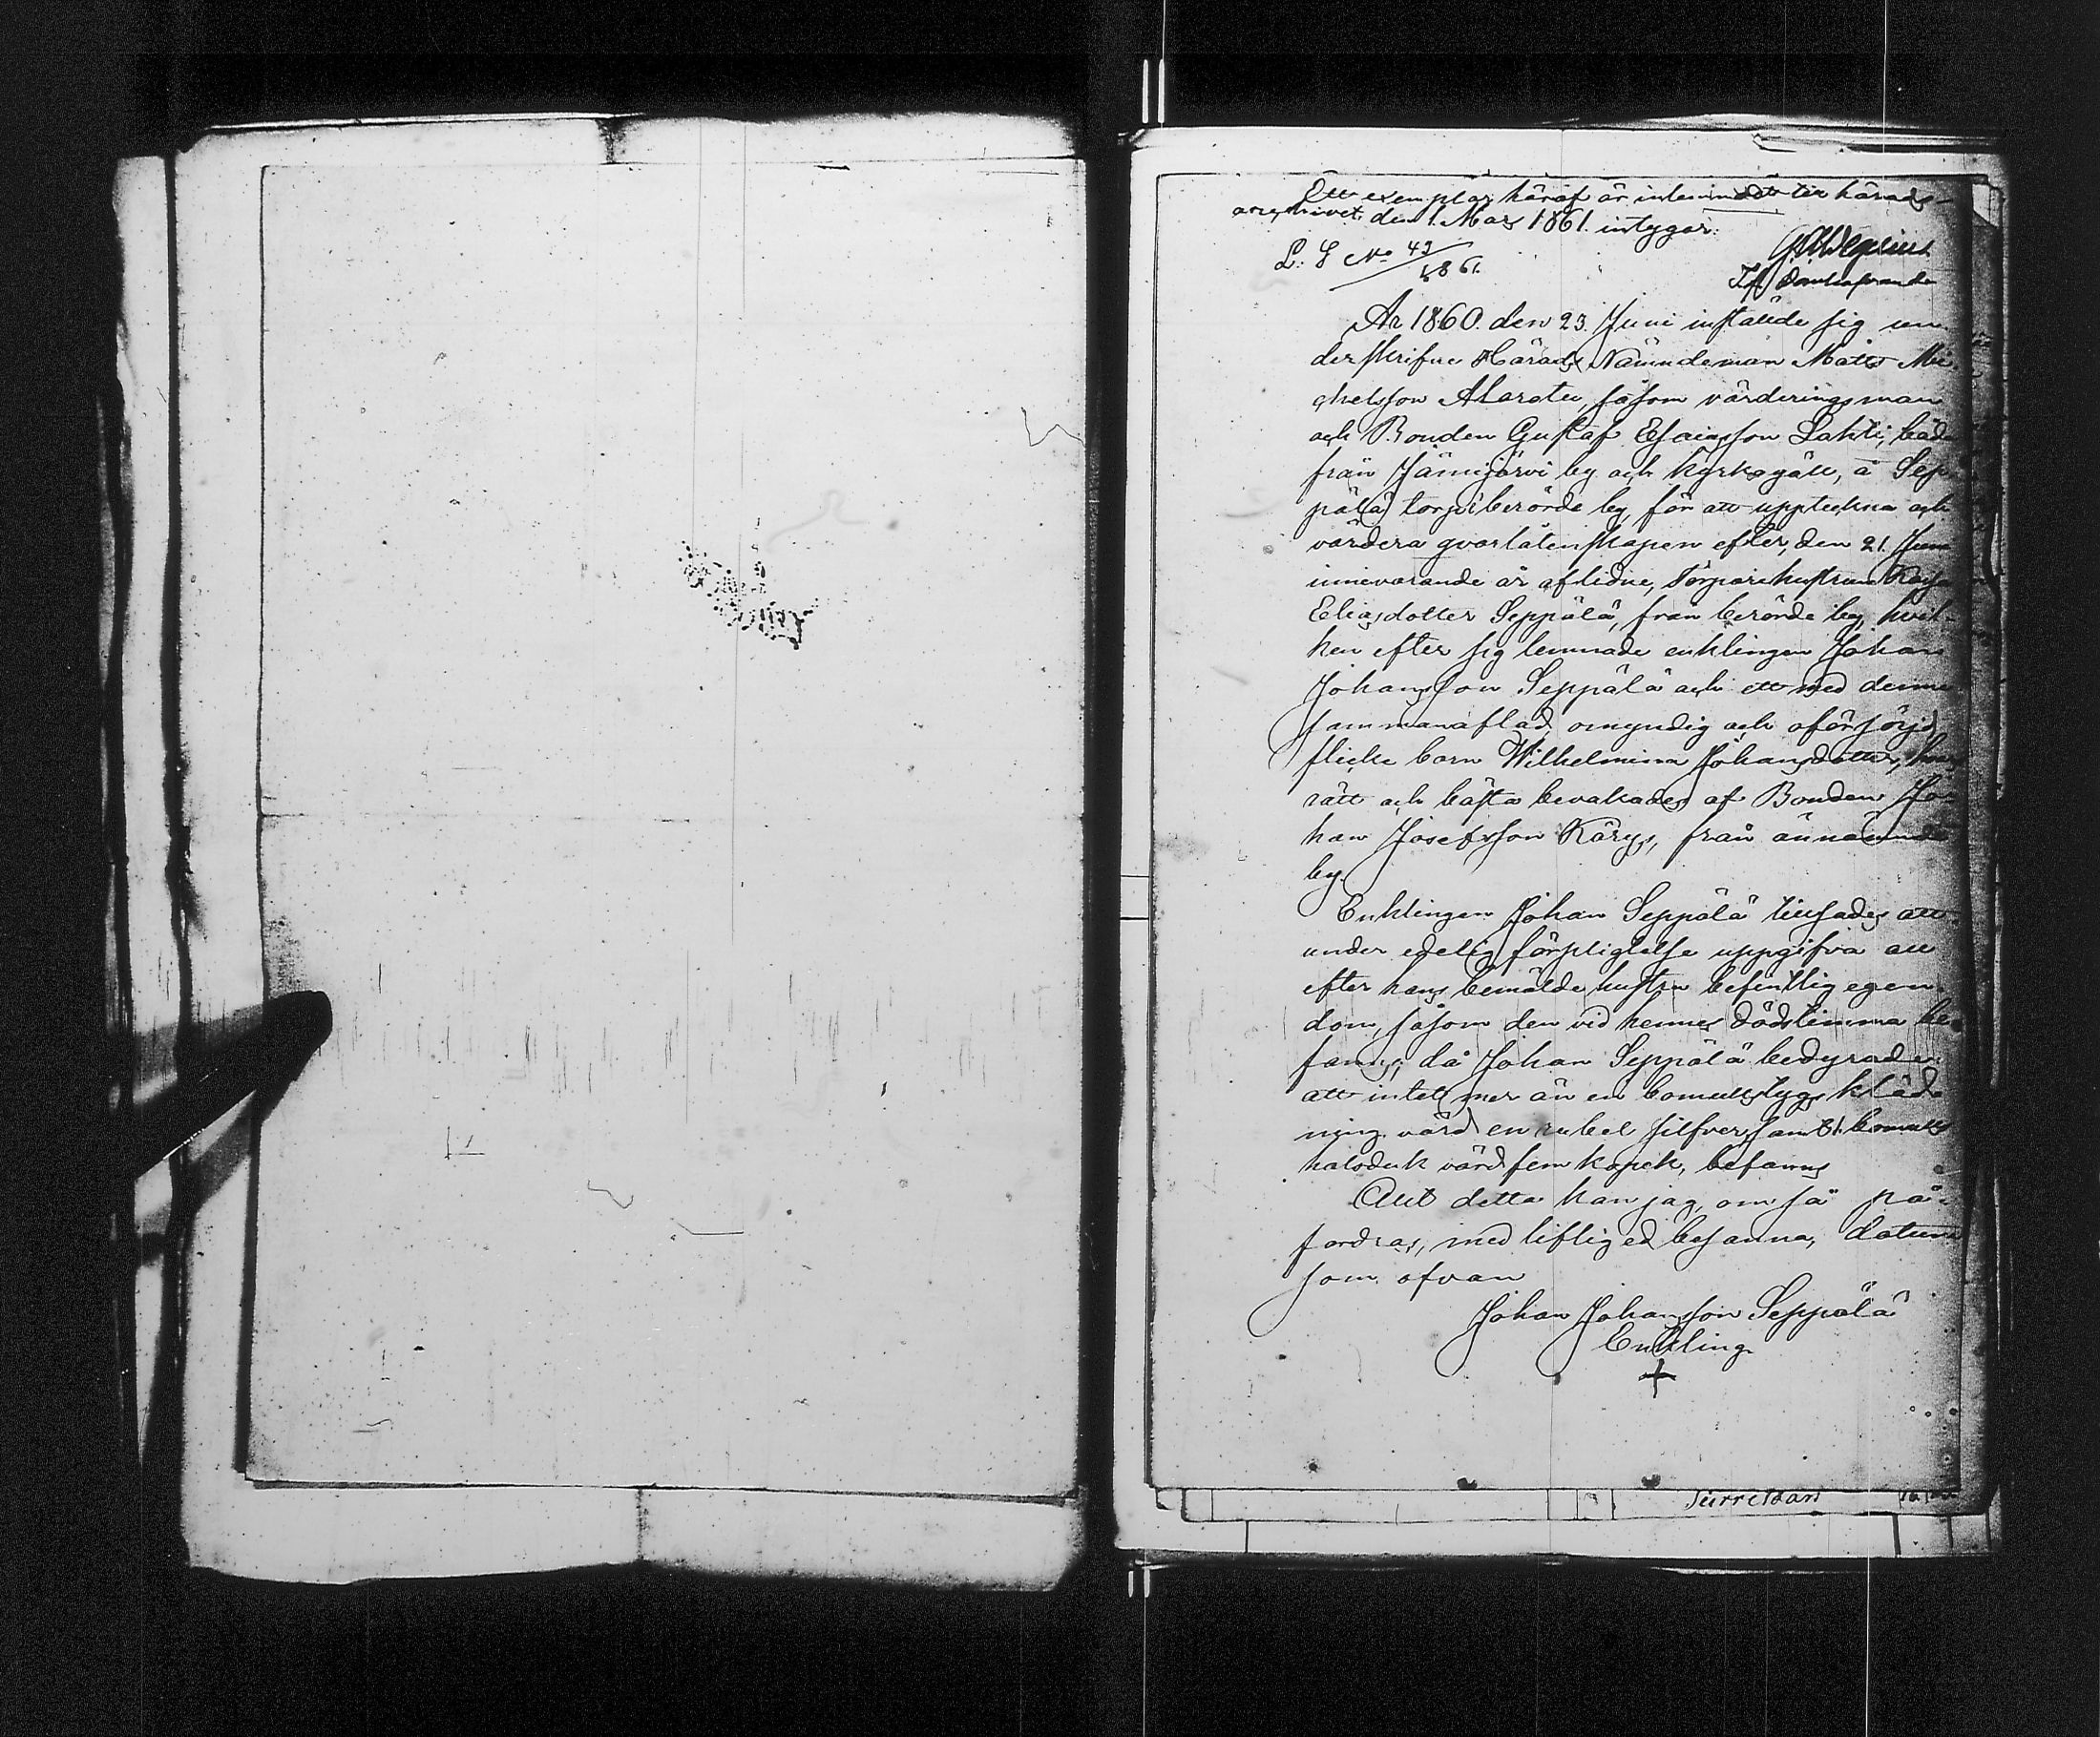 Ett exemplar häraf är inlemnadt till härads-
archivet den 1 Mars 1861 intygar:
L: S No 43/1861
Tf Domhafvande
År 1860 den 23 Juni instälde sig un-
derskrifne Härads Nämndeman Matts Mic-
helsson Alarotu, såsom värderingsman
och Bonden Gustaf Esaiasson Lahti, båda
från Jämijärvi by och kyrkogäll, å Sep-
pälä torp i berörde by, för att uppteckna och
värdera qvarlåtenskapen efter, den 21 Juni
innevarande år aflidne, Torparehustrun Kajsa
Eliasdotter Seppälä, från berörde by, hvil-
ken efter sig lemnade enklingen Johan
Johansson Seppälä och ett med denne
sammanaflad, omyndig och oförsörjd
flicke barn Wilhelmina Johansdotter, hvars
rätt och bästa bevakades af Bonden Jo-
han Josefsson Kärys, från ännämnde
by.
Enklingen Johan Seppälä tillsades att
under edelig förpligtelse uppgifva all
efter hans bemälde hustru befintlig egen-
dom, såsom den vid hennes dödstimma be-
fanns; då Johan Seppälä bedyrade
att intet mer än en bomullstygs kläd-
ning värd en rubel silfver, samt 1 bomulls
halsduk värd fem kopek, befanns
Allt detta kan jag, om så på-
fordras, med liflig ed besanna, datum
som ofvan
Johan Johansson Seppälä
Enkling
+